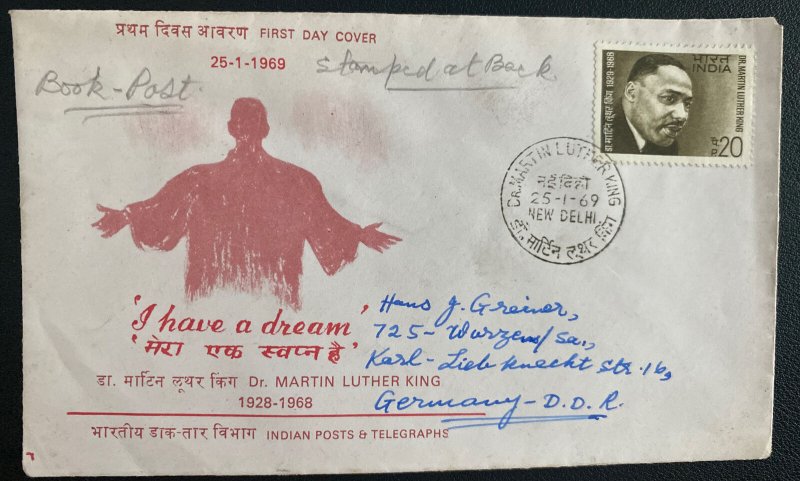 प्रथम दिवस आवरण FIRST DAY COVER
25-1-1969
Stamped at Back
Book-Post.
भारत
INDIA
DR. MARTIN LUTHER KING
डा. मार्टिन लूथर किंग 1929-1968
पै.
P. 20
DR. MARTIN LUTHER KING
नई दिल्ली
25-1-69
NEW DELHI.
डॉ. मार्टिन लूथर किंग
'I have a dream'
'मेरा एक स्वप्न है'
डा. मार्टिन लूथर किंग Dr. MARTIN LUTHER KING
1928-1968
भारतीय डाक-तार विभाग INDIAN POSTS & TELEGRAPHS
Hans J. Greiner,
725- Wurzen/Sa.,
Karl-Liebknecht Str. 16,
Germany-D.D.R.